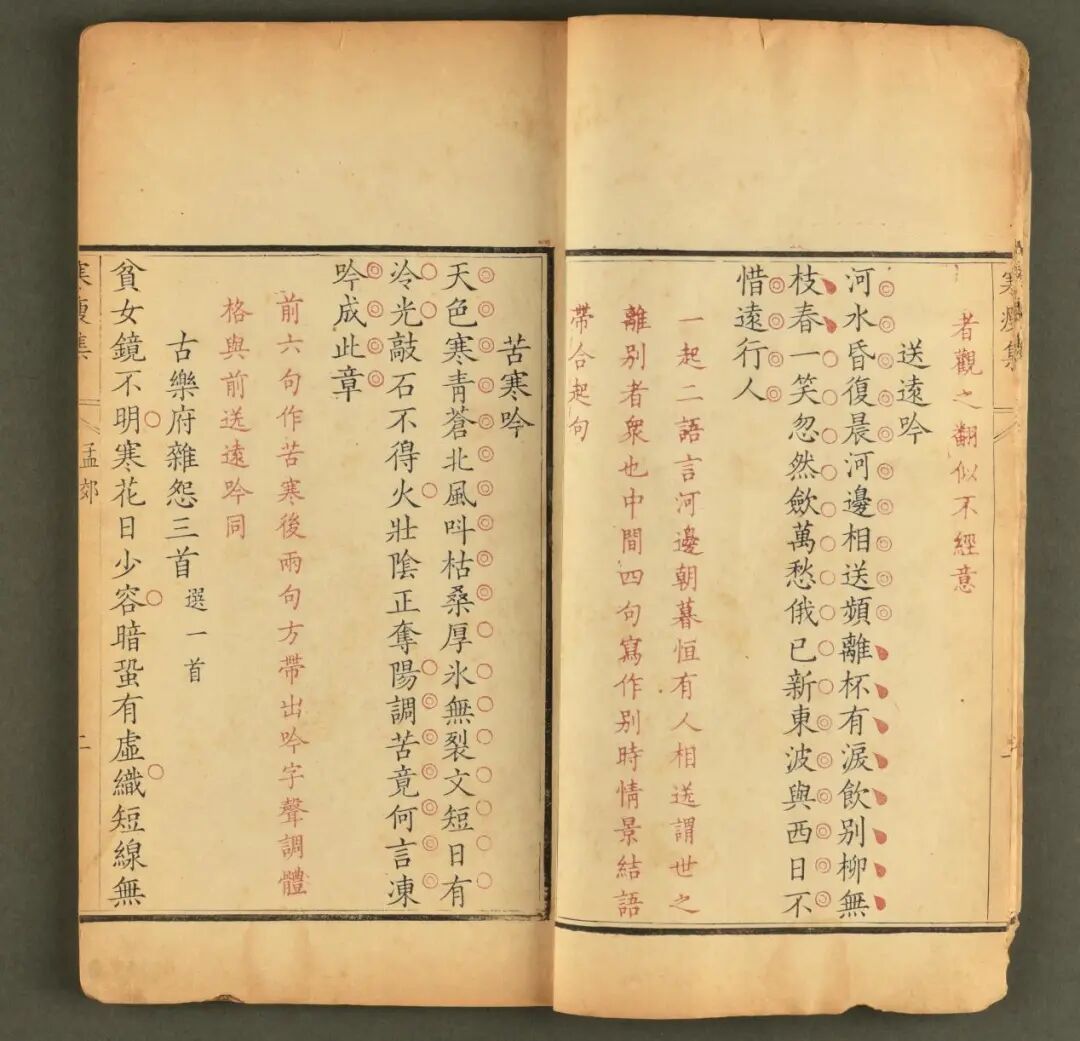 寒瘦集
者觀之翻似不經意
送遠吟
河水昏復晨河邊相送頻離杯有淚飲別柳無
枝春一笑忽然斂萬愁俄已新東波與西日不
惜遠行人
一起二語言河邊朝暮恒有人相送謂世之
離別者衆也中間四句寫作別時情景結語
帶合起句
苦寒吟
天色寒青蒼北風呌枯桑厚氷無裂文短日有
冷光敲石不得火壯陰正奪陽調苦竟何言凍
吟成此章
前六句作苦寒後兩句方帶出吟字聲調體
格與前送遠吟同
古樂府雜怨三首 選一首
貧女鏡不明寒花日少容暗蛩有虛織短線無
寒瘦集
孟郊
二